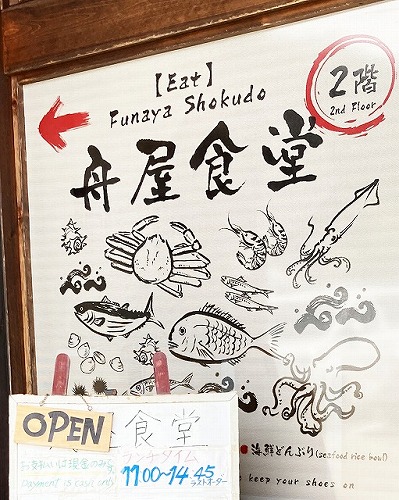 【Eat】
Funaya Shokudo
2階
2nd Floor
舟屋食堂
海鮮どんぶり(seafood rice bowl)
keep your shoes on
OPEN
食堂
お支払いは現金のみ
payment is cash only
ランチタイム
11:00~14:45
ラストオーダー